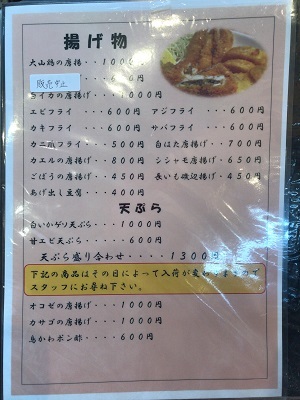 揚げ物
大山鶏の唐揚・・1000円
販売中止 600円
イカの唐揚げ・・・1000円
エビフライ・・・600円 アジフライ・・・600円
カキフライ・・・600円 サバフライ・・・600円
カニ爪フライ・・500円 白はた唐揚げ・・700円
カエルの唐揚・・800円 シシャモ唐揚げ・650円
ごぼうの唐揚・・450円 長いも磯辺揚げ・450円
あげ出し豆腐・・400円
天ぷら
白いかゲソ天ぷら・・・1000円
甘エビ天ぷら・・・・・600円
天ぷら盛り合わせ・・・・1300円
下記の商品はその日によって入荷が変わりますので
スタッフにお尋ね下さい。
オコゼの唐揚げ・・・1000円
カサゴの唐揚げ・・・1000円
鳥かわポン酢・・・・600円